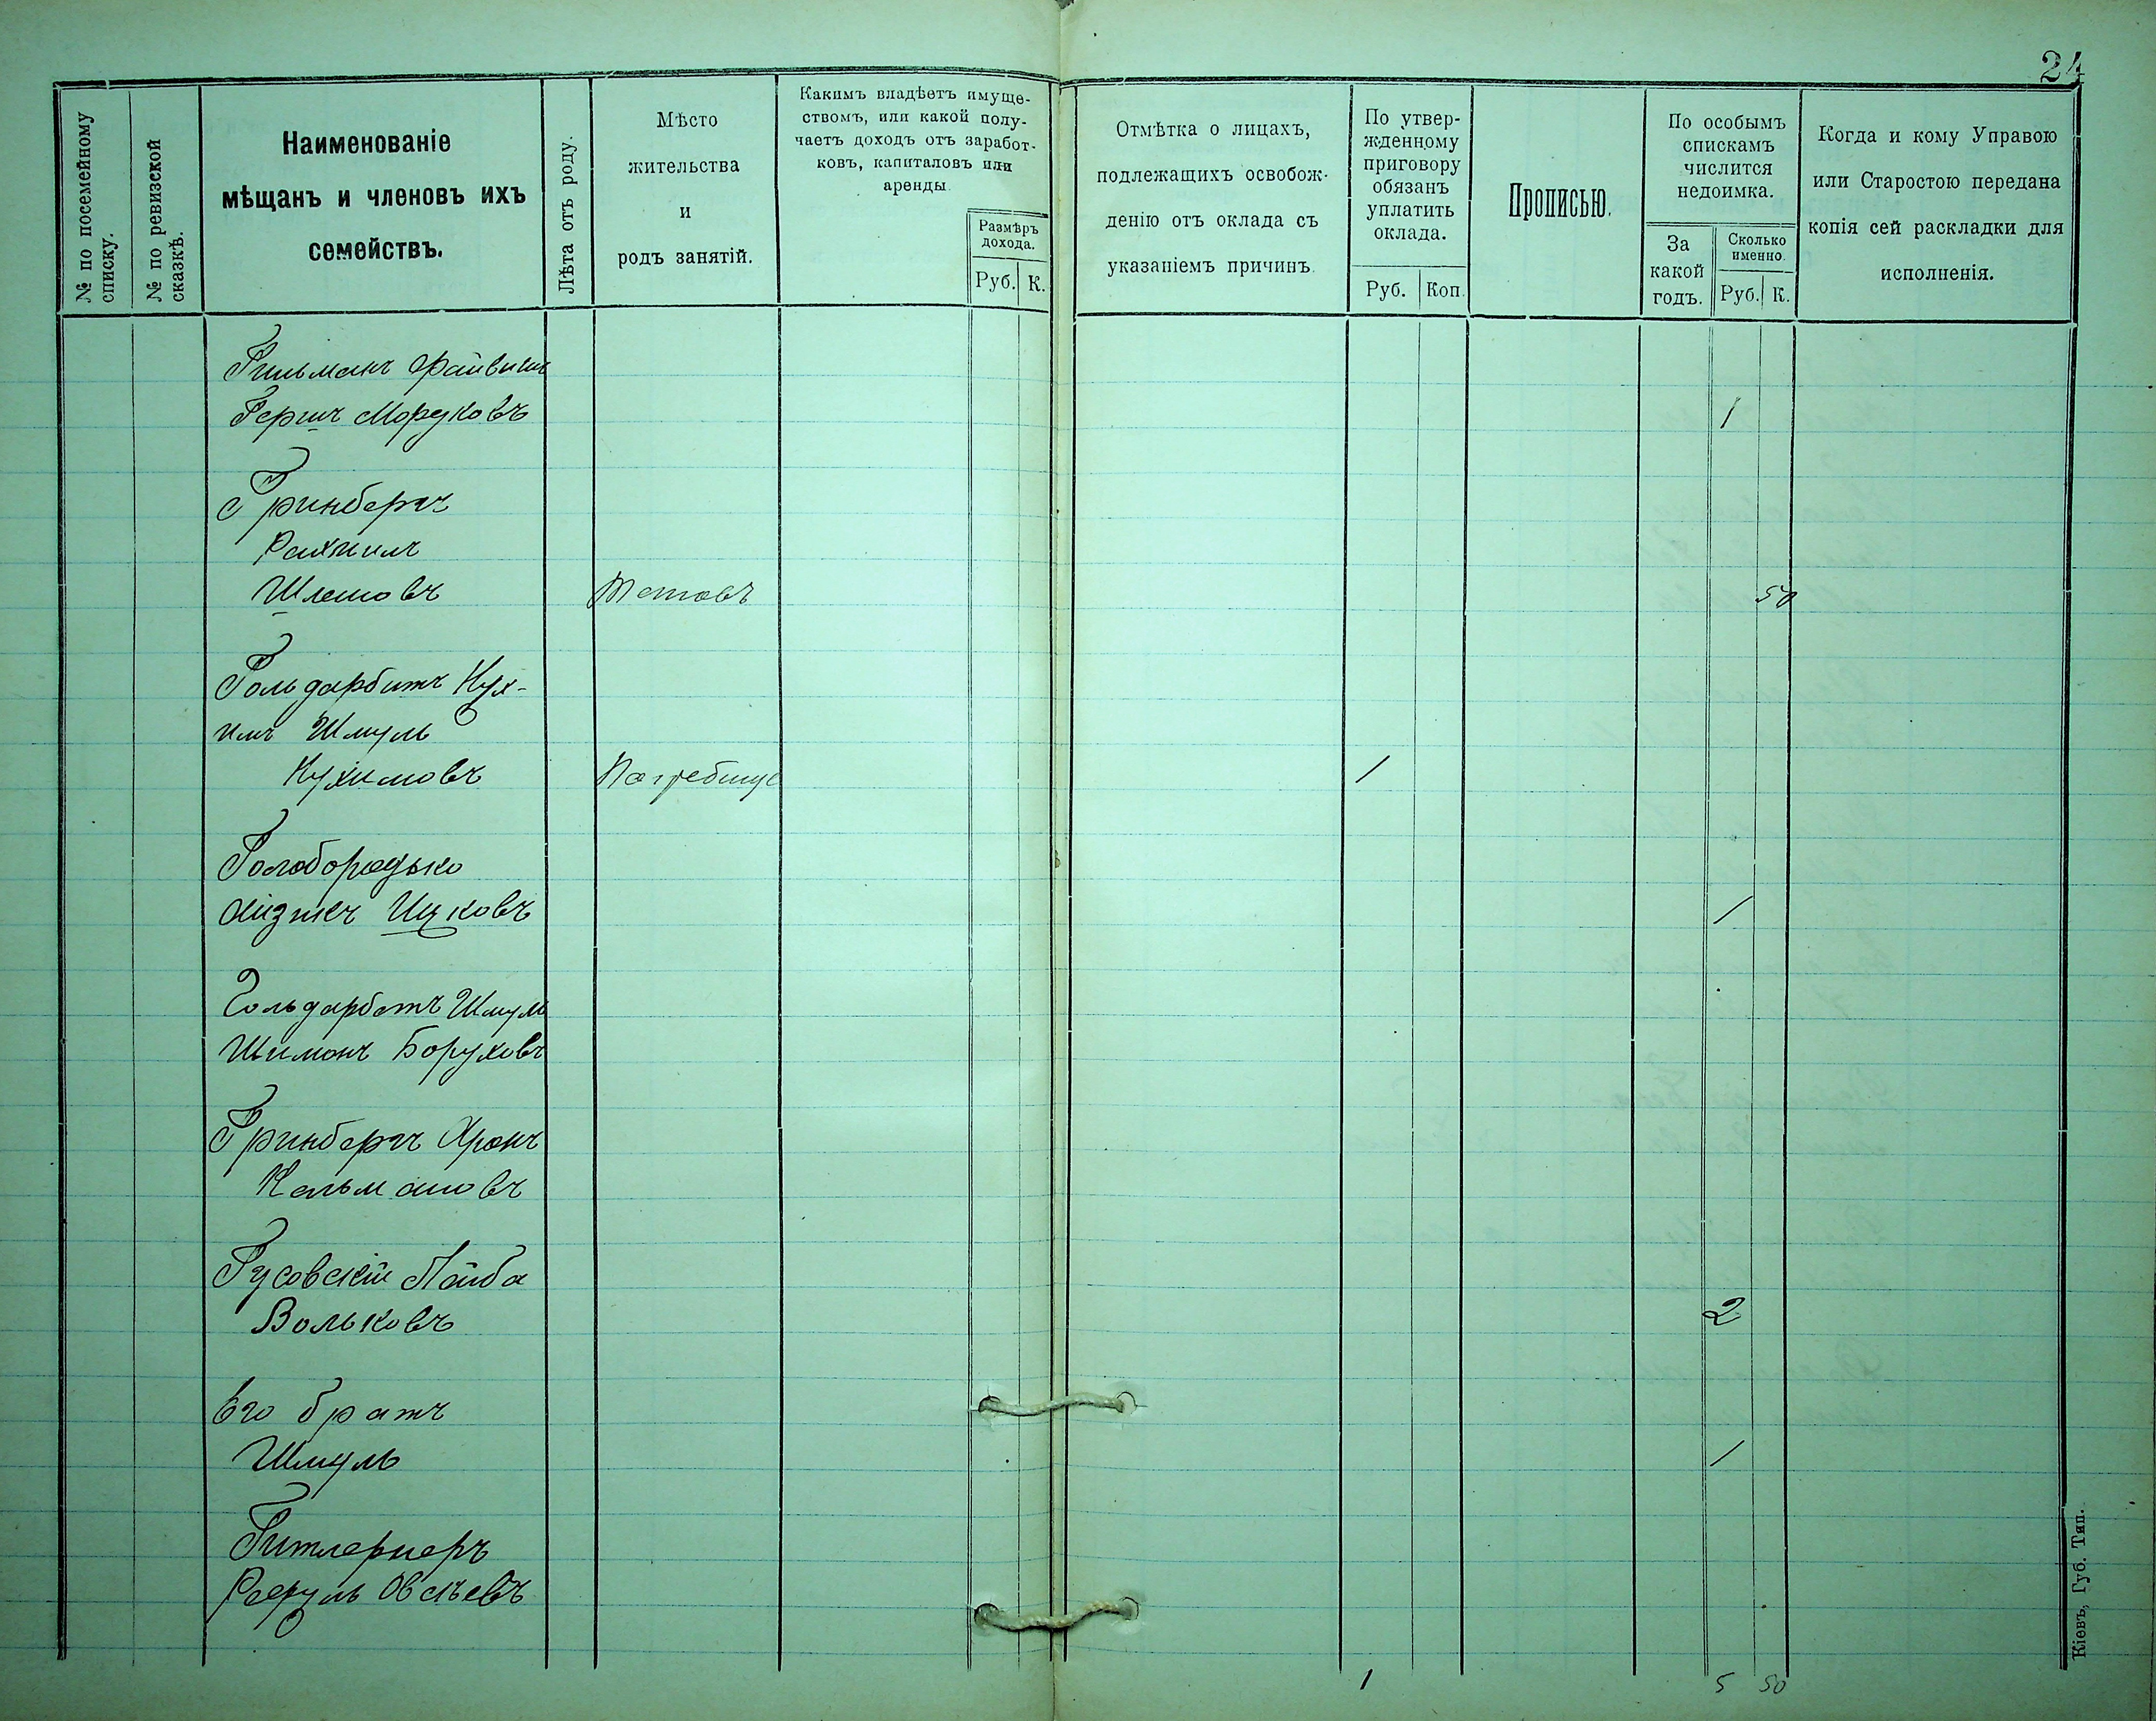 24
№ по посемейному списку.
№ по ревизской сказкѣ.
Наименованіе
мѣщанъ и членовъ ихъ
семействъ.
Лѣта отъ роду.
Мѣсто
жительства
и
родъ занятій.
Какимъ владѣетъ имуще-
ствомъ, или какой полу-
чаетъ доходъ отъ заработ-
ковъ, капиталовъ или
аренды.
Размѣръ
дохода.
Руб. К.
Отмѣтка о лицахъ,
подлежащихъ освобож-
денію отъ оклада съ
указаніемъ причинъ.
По утвер-
жденному
приговору
обязанъ
уплатить
оклада.
Руб. Коп.
Прописью.
По особымъ
спискамъ
числится
недоимка.
За
какой
годъ.
Сколько
именно.
Руб. К.
Когда и кому Управою
или Старостою передана
копія сей раскладки для
исполненія.
Гильманъ Файвишъ
Гершъ Морд­ковъ 1
Гринбергъ
Рахмилъ
Шлемовъ 50
Гольдарбитъ Нух-
имъ Шмуль
Нухимовъ Погребище 1
Голобородько
Ицковъ 1
Гольдарбетъ Шмуль
Шимонъ Боруховъ
Гринбергъ Аронъ
Кальмановъ
Гусовскій Лейба
Вольковъ 2
Его братъ
Шмуль 1
Овсѣевъ
1 5 50
Кіевъ, Губ. Тип.